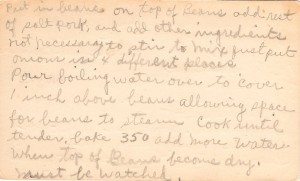 Put in beans on top of Beans add rest
of salt pork, and add other ingredients
not necessary to stir to mix just put
onions in 4 different places
Pour boiling water over to cover
1 inch above beans allowing space
for beans to steam Cook until
tender, bake 350 add more water
when top of Beans become dry.
Must be watched